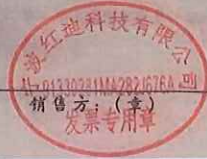 波红迪科技有限公司
销售方:(章)
发票专用章